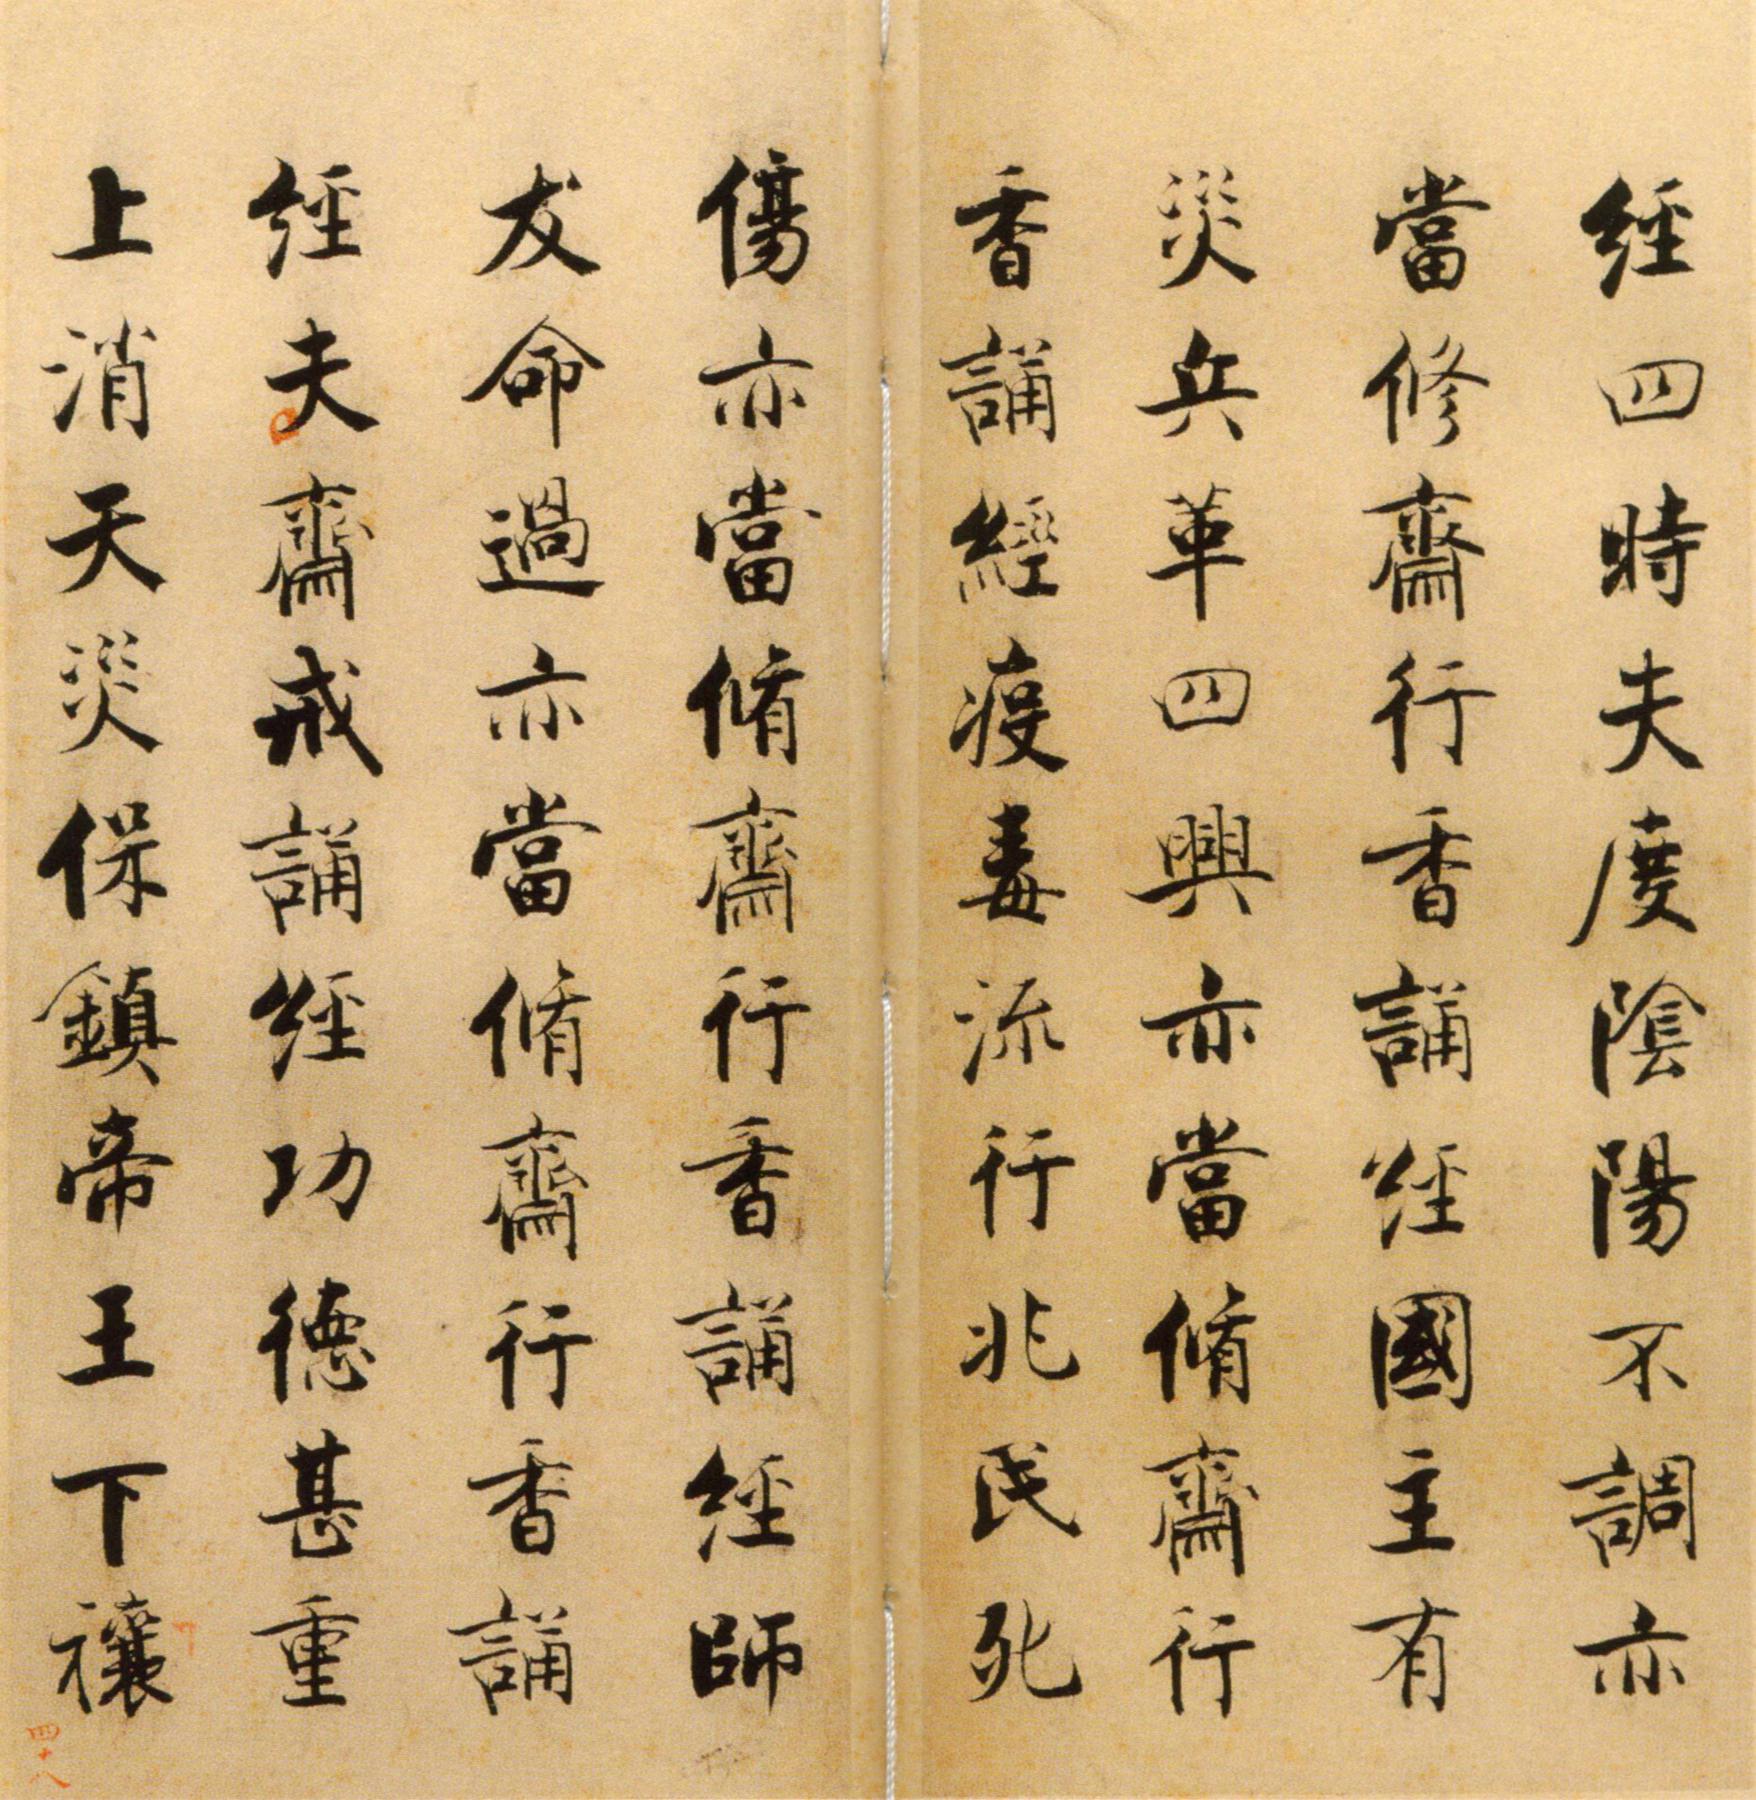 經四時夫度陰陽不調亦
當修齋行香誦經國主有
災兵革四興亦當脩齋行
香誦經疫毒流行兆民死
傷亦當脩齋行香誦經師
友命過亦當脩齋行香誦
經夫齋戒誦經功德甚重
上消天災保鎮帝王下禳
四十八